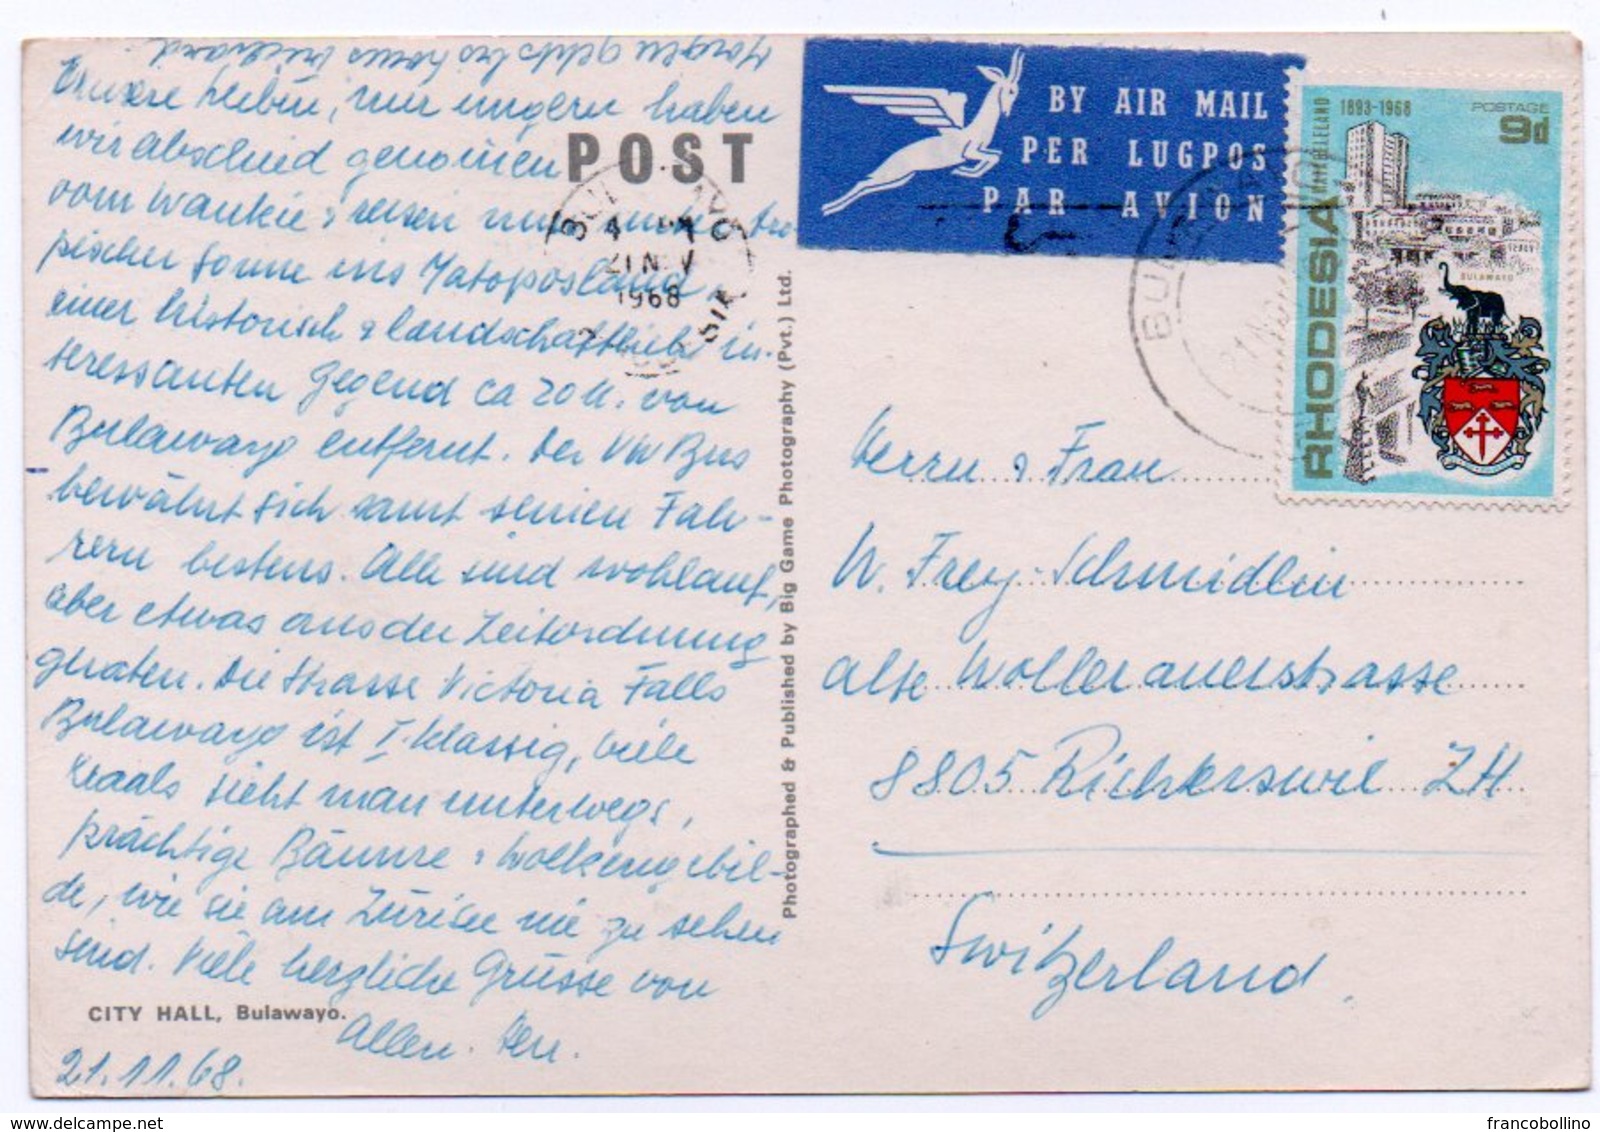 Morgen geht's
Unsere Lieben, nur ungern haben
wir abschied genommen
vom Wankie & reisen nun
pischer Sonne ins Matoposland,
einer historisch & landschaftlich in-
teressanten Gegend ca 20 M. von
Bulawayo entfernt. Der VW Bus
bewährt sich samt seinen Fah-
rern bestens. Alle sind wohlauf,
aber etwas aus der Zeitordnung
geraten. Die Strasse Victoria Falls
Bulawayo ist I. klassig, viele
Kraals sieht man unterwegs,
prächtige Bäume & Wolkengebil-
de, wie sie am Zürisee nie zu sehen
sind. Viele herzliche Grüsse von
Allen.
21.11.68.
CITY HALL, Bulawayo.
POST
21 NOV
1968
Photographed & Published by Big Game Photography (Pvt.) Ltd.
BY AIR MAIL
PER LUGPOS
PAR AVION
MATABELELAND
1893-1968
POSTAGE
9d
BULAWAYO
RHODESIA
Herrn & Frau
W. Frey-Schmidlin
alte Wollerauerstrasse
8805 Richterswil ZH
Switzerland
francobollino